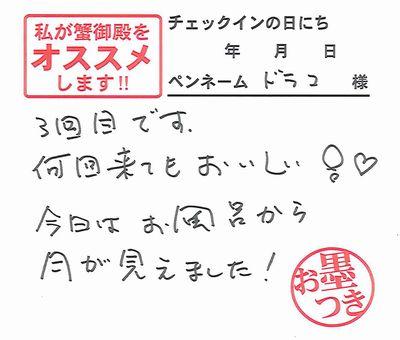 私が蟹御殿を
オススメ
します!!
チェックインの日にち
年 月 日
ペンネーム ドラコ 様
3回目です.
何回来てもおいしい♡
今日はお風呂から
月が見えました!
お墨つき